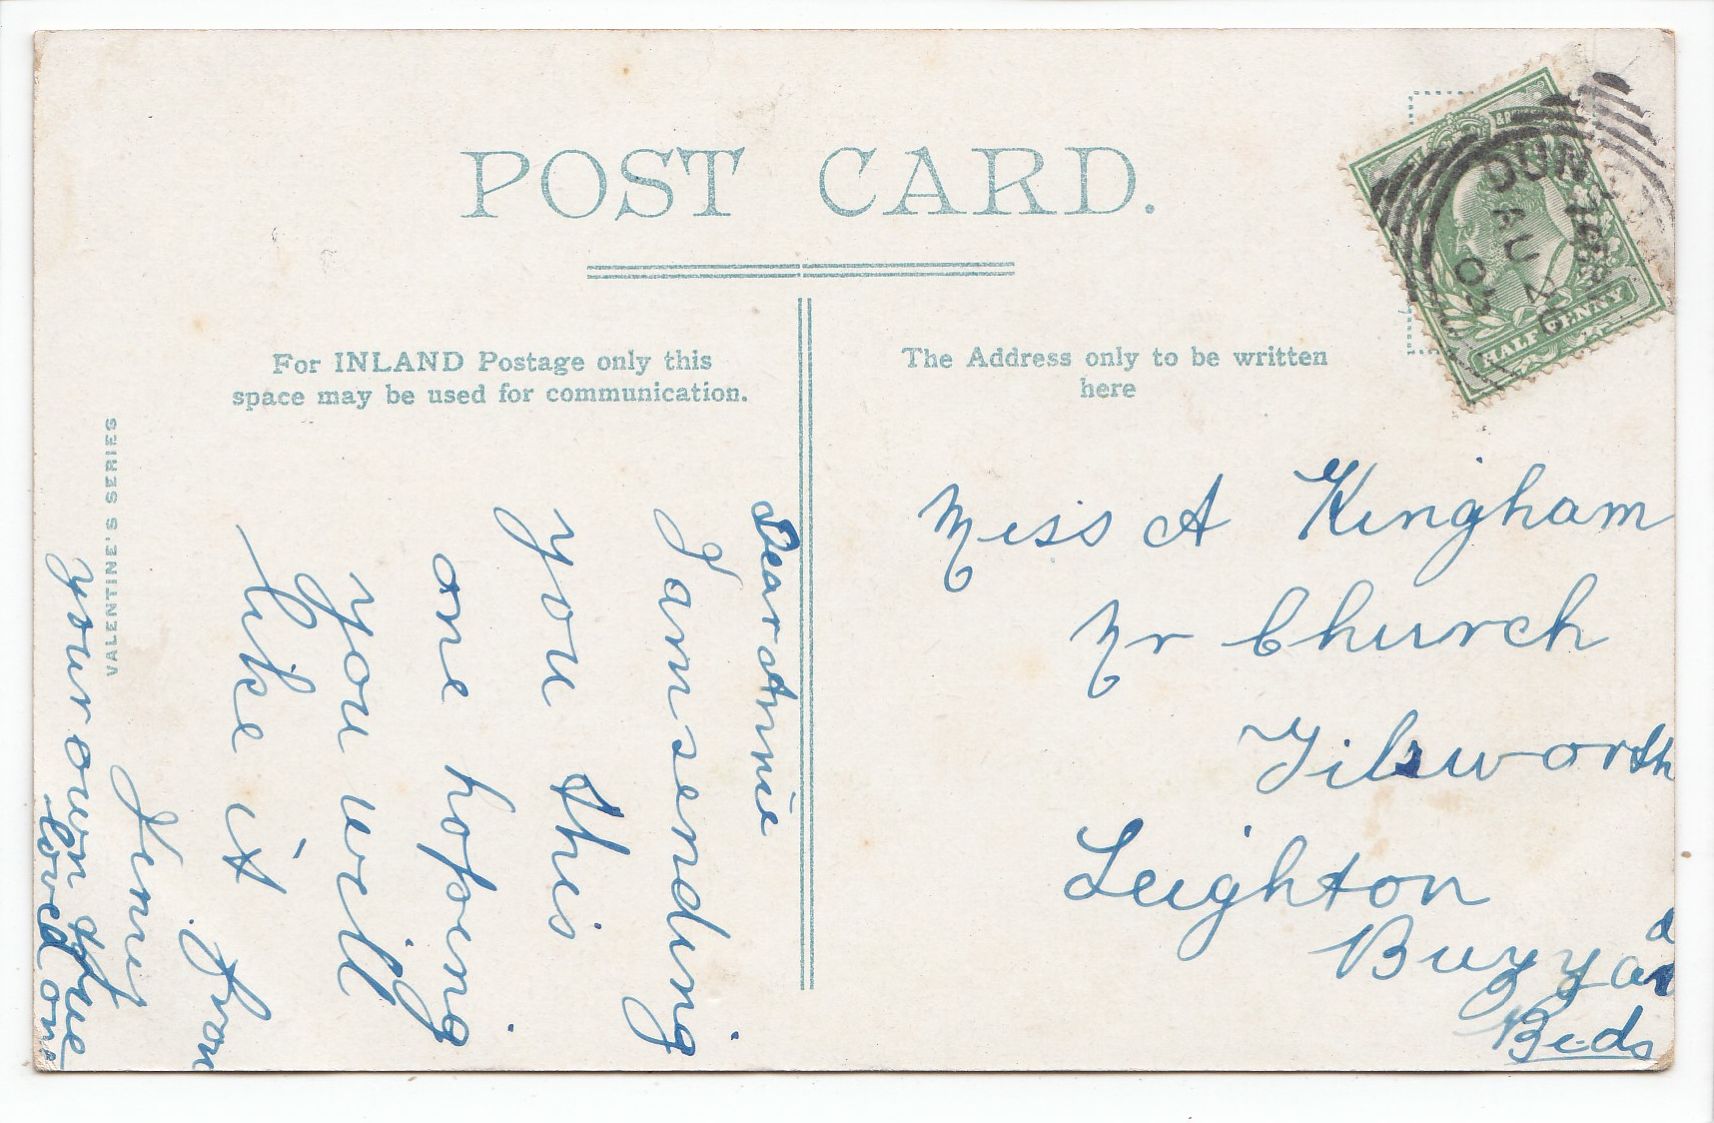 POST CARD.
For INLAND Postage only this
space may be used for communication.
The Address only to be written
here
VALENTINE'S SERIES
HALF PENNY
DUN
AU 26
Dear Annie
I am sending
you this
one hoping
you will
like it
from
Jenny
your own true
loved one
Miss A Kingham
Nr Church
Tilsworth
Leighton
Buzzard
Beds